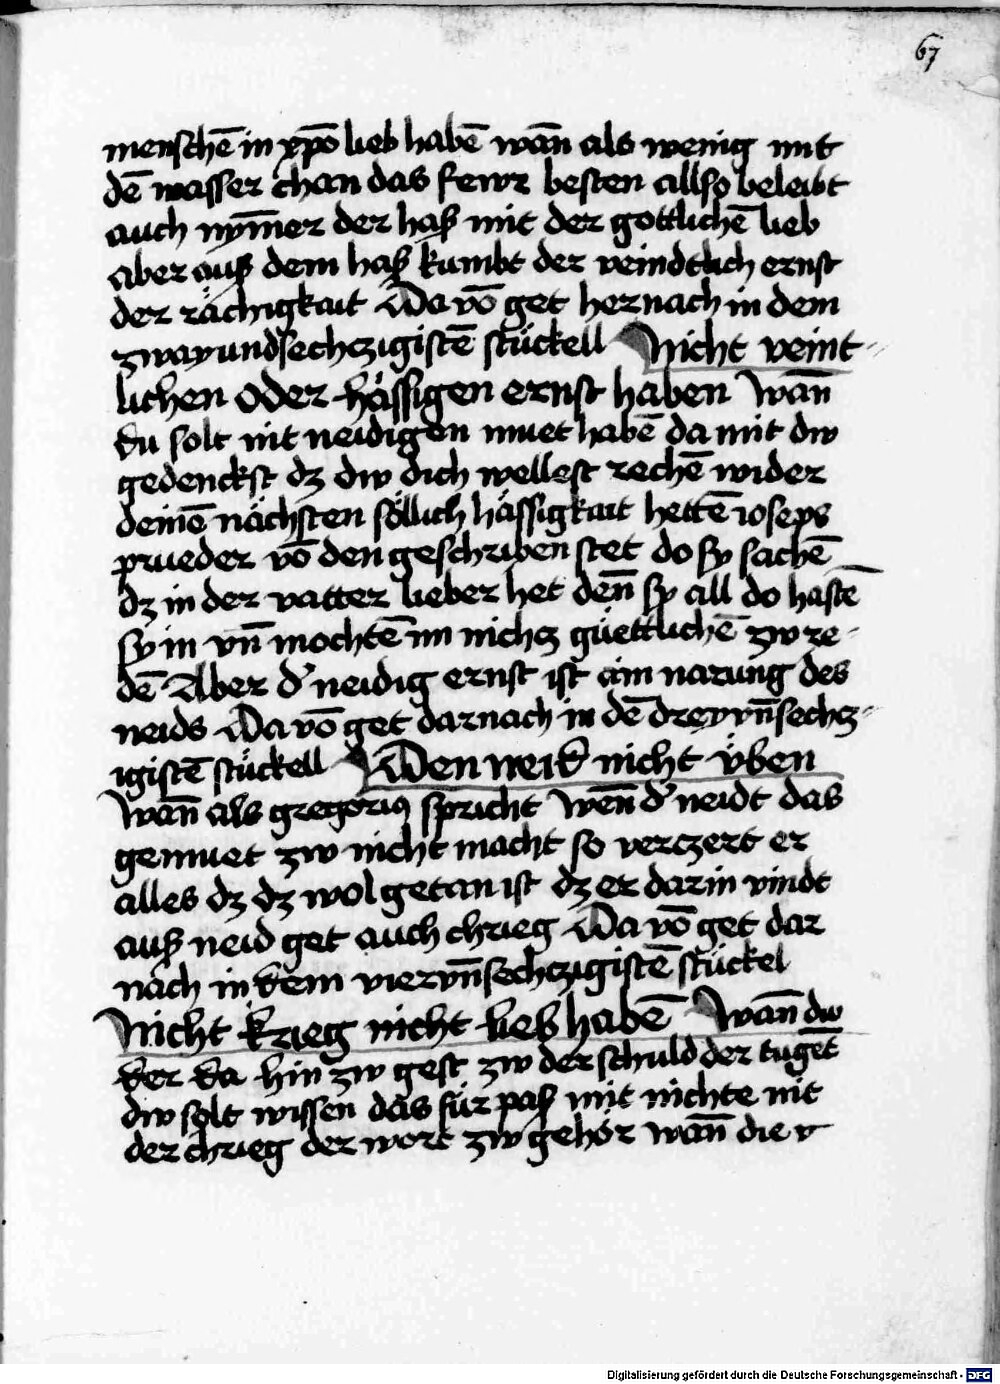 67
menschē in xp̄o lieb habē wān als wenig mit
dē wasser chan das fewr besten allso beleibt
auch nym̄er der haß mit der gottlichē lieb
aber auß dem haß kumbt der veindtlich ernst
der rächigkait Da vō get hernach in dem
zwayundsechczigistē stückell Nicht veint-
lichen oder hässigen ernst haben Wān
du solt nit neidigen muet habē da mit dw
gedenckst dz dw dich wellest rechē wider
deinē nächsten söllich hässigkait hettē ioseps
prueder vō den geschriben stet do sy sachē
dz in der vatter lieber het den̄ sy all do hastē
sy in vn̄ mochtē im nichcz güettlichē zw re-
dē Aber d' neidig ernst ist ain narung des
neids Da vō get darnach in dē dreyvn̄sechcz-
igistē stückell Den neid nicht üben
Wān als gregorius spricht Wen̄ d' neidt das
gemuet zw nicht macht so verczert er
alles dz dz wol getan ist dz er darin vindt
auß neid get auch chrieg Da vō get dar
nach in dem viervn̄sechczigistē stückel
Nicht krieg nicht lieb habē Wān dw
der da hin zw gest zw der schuld der tugēt
dw solt wissen das für paß mit nichte nit
der chrieg der wort zw gehör wān die v
Digitalisierung gefördert durch die Deutsche Forschungsgemeinschaft - DFG